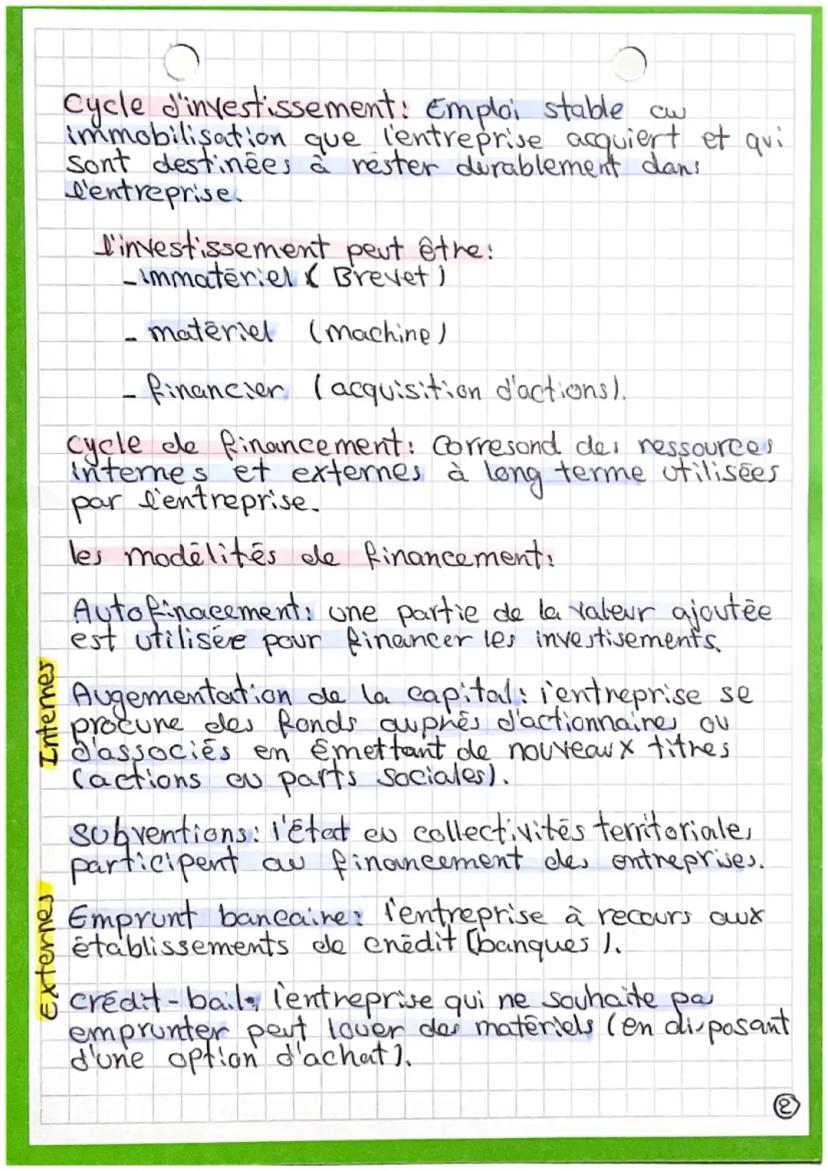 Cycle d'investissement: Emploi stable au
immobilisation que l'entreprise acquiert et qui
sont destinées à rester durablement dans
l'entreprise.
l'investissement peut être:
- immatériel ( Brevet )
- matériel (machine)
- financier (acquisition d'actions).
cycle de financement: Corresond des ressources
internes et externes à long terme utilisées
par l'entreprise.
les modélités de financement:
Autofinacement: une partie de la valeur ajoutée
est utilisée pour financer les investisements.
Internes
Augementation de la capital: l'entreprise se
procure des fonds auprés d'actionnaires ou
d'associés en émettant de nouveaux titres
(actions ou parts sociales).
Subventions: l'État ou collectivités territoriales
participent au financement des entreprises.
Externes
Emprunt bancaire: l'entreprise à recours aux
établissements de crédit (banques).
Crédit-bail: l'entreprise qui ne souhaite pas
emprunter peut louer des matériels (en disposant
d'une option d'achat).
2